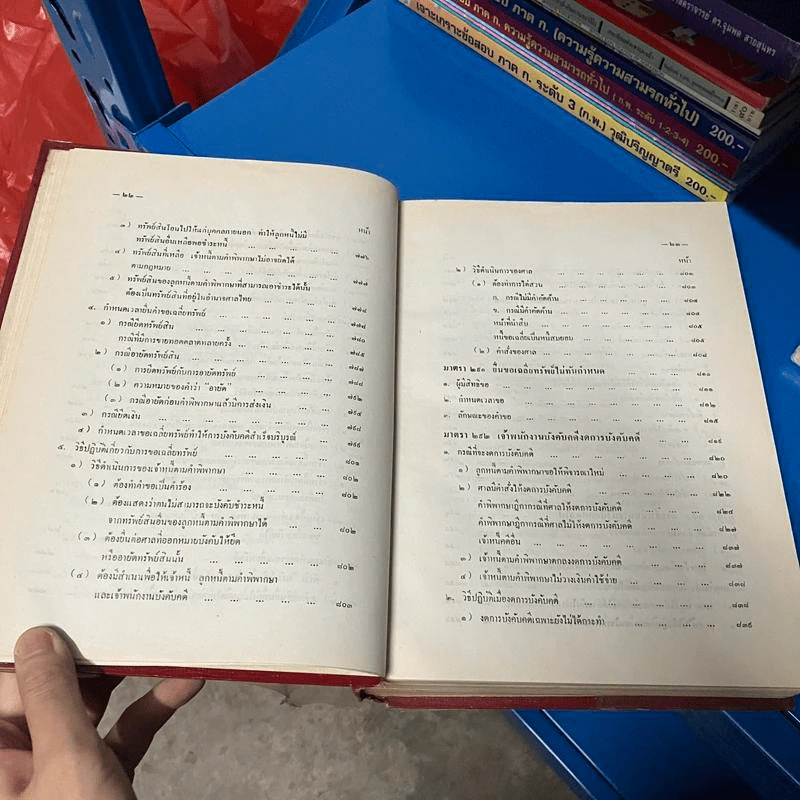 — ๒๒ —
หน้า
๓) ทรัพย์สินโอนไปให้แก่บุคคลภายนอก ทำให้ลูกหนี้ไม่มี
ทรัพย์สินอื่นเหลือพอชำระหนี้ ... ... ... ... ... ๗๗๖
๔) ทรัพย์สินที่เหลือ เจ้าหนี้ตามคำพิพากษาไม่อาจยึดได้
ตามกฎหมาย ... ... ... ... ...
๕) ทรัพย์สินของลูกหนี้ตามคำพิพากษาที่สามารถเอาชำระได้นั้น
ต้องเป็นทรัพย์สินที่อยู่ในอำนาจศาลไทย ... ... ... ๗๗๘
๔. กำหนดเวลายื่นคำขอเฉลี่ยทรัพย์ ... ... ... ... ๗๗๘
๑) กรณียึดทรัพย์สิน ... ... ... ... ...
กรณีที่มีการขายทอดตลาดหลายครั้ง ... ... ... ๗๘๕
๒) กรณีอายัดทรัพย์สิน ... ... ... ...
(๑) การยึดทรัพย์กับการอายัดทรัพย์ ... ... ...
(๒) ความหมายของคำว่า "อายัด" ... ... ...
(๓) กรณีอายัดก่อนคำพิพากษาแล้วมีการส่งเงิน ... ...
๓) กรณียึดเงิน ... ... ... ... ...
๔) กำหนดเวลาขอเฉลี่ยทรัพย์ทำให้การบังคับคดีสำเร็จบริบูรณ์ ...
๕. วิธีปฏิบัติเกี่ยวกับการขอเฉลี่ยทรัพย์ ... ... ... ๘๐๑
๑) วิธีดำเนินการของเจ้าหนี้ตามคำพิพากษา ... ... ๘๐๒
(๑) ต้องทำคำขอเป็นคำร้อง ... ... ... ๘๐๒
(๒) ต้องแสดงว่าตนไม่สามารถจะบังคับชำระหนี้
จากทรัพย์สินอื่นของลูกหนี้ตามคำพิพากษาได้ ... ... ๘๐๒
(๓) ต้องยื่นต่อศาลที่ออกหมายบังคับให้ยึด
หรืออายัดทรัพย์สินนั้น ... ... ... ... ๘๐๒
(๔) ต้องมีสำเนาเพื่อให้เจ้าหนี้ ลูกหนี้ตามคำพิพากษา
และเจ้าพนักงานบังคับคดี ... ... ... ... ๘๐๓
— ๒๓ —
หน้า
๒) วิธีดำเนินการของศาล ... ... ... ... ๘๐๓
(๑) ต้องทำการไต่สวน ... ... ... ... ๘๐๓
ก. กรณีไม่มีคำคัดค้าน ... ... ... ๘๐๔
ข. กรณีมีคำคัดค้าน ... ... ...
หน้าที่นำสืบ ... ... ... ... ๘๐๕
หนี้ขอเฉลี่ยเป็นหนี้สมยอม ... ... ...
(๒) คำสั่งของศาล ... ... ... ... ๘๐๘
มาตรา ๒๙๑ ยื่นขอเฉลี่ยทรัพย์ไม่ทันกำหนด ... ... ๘๑๐
๑. ผู้มีสิทธิขอ ... ... ... ... ... ๘๑๑
๒. กำหนดเวลาขอ ... ... ... ... ... ๘๑๒
๓. ลักษณะของคำขอ ... ... ... ... ... ๘๑๕
มาตรา ๒๙๒ เจ้าพนักงานบังคับคดีงดการบังคับคดี ... ๘๑๙
๑. กรณีที่จะงดการบังคับคดี ... ... ... ... ๘๒๐
๑) ลูกหนี้ตามคำพิพากษาขอให้พิจารณาใหม่ ... ... ๘๒๐
๒) ศาลมีคำสั่งให้งดการบังคับคดี ... ... ... ๘๒๒
คำพิพากษาฎีกากรณีที่ศาลให้งดการบังคับคดี ... ... ๘๒๔
คำพิพากษาฎีกากรณีที่ศาลไม่ให้งดการบังคับคดี ... ... ๘๒๗
เจ้าหนี้คดีอื่น ... ... ... ... ๘๓๗
๓) เจ้าหนี้ตามคำพิพากษาตกลงงดการบังคับคดี ... ...
๔) เจ้าหนี้ตามคำพิพากษาไม่วางเงินค่าใช้จ่าย ... ... ๘๓๘
๒. วิธีปฏิบัติเมื่องดการบังคับคดี ... ... ... ๘๓๘
๑) งดการบังคับคดีเฉพาะยังไม่ได้กระทำ ... ... ๘๓๙
(ความรู้ความสามารถทั่วไป) 200.-
ภาค ก. ความรู้ความสามารถทั่วไป ( ก.พ. ระดับ 1-2-3-4) 200.-
เจาะเกราะข้อสอบ ภาค ก. ระดับ 3 (ก.พ.) วุฒิปริญญาตรี 200.-